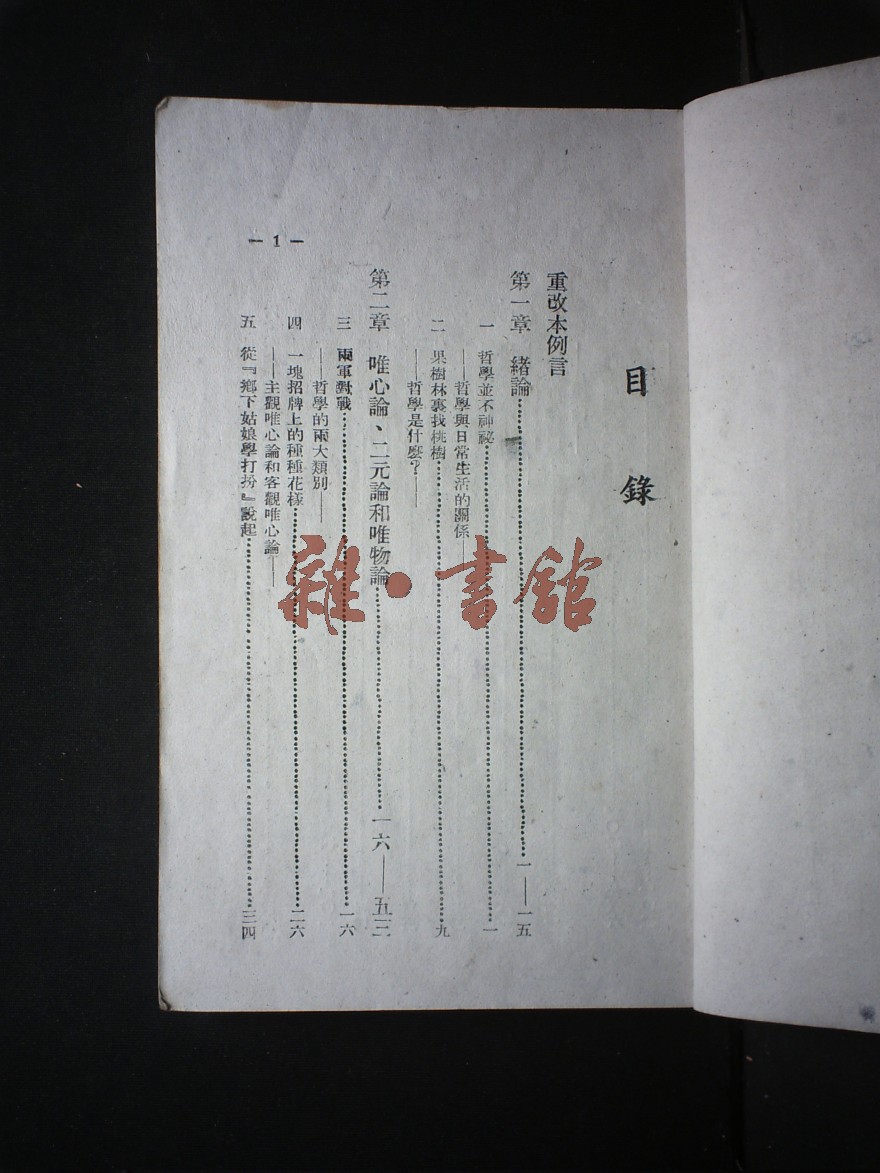 目錄
重改本例言
第一章 緒論……一——一五
一 哲學並不神祕……一
——哲學與日常生活的關係——
二 果樹林裏找桃樹……九
——哲學是什麼？——
第二章 唯心論、二元論和唯物論……一六——五三
三 兩軍對戰……一六
——哲學的兩大類別——
四 一塊招牌上的種種花樣……二六
——主觀唯心論和客觀唯心論——
五 從『鄉下姑娘學打扮』說起……三四
— 1 —
雜·書舘